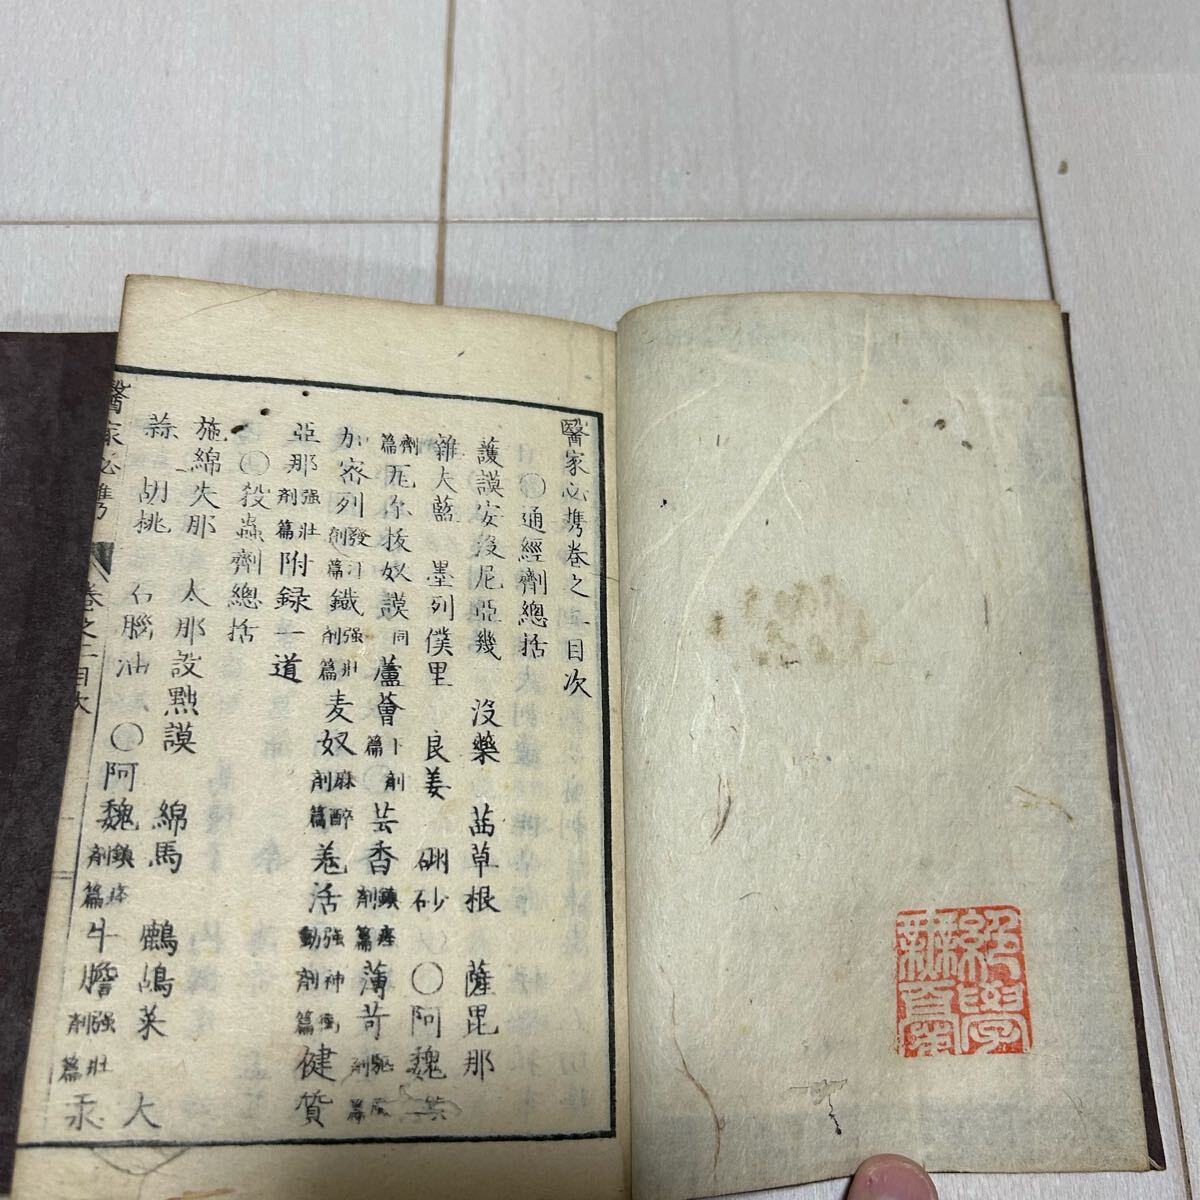 醫家必携卷之二目次
通經劑總括
護謨安沒尼亞幾 沒藥 茜草根 薩毘那
雜夫藍 墨列僕里 良姜 硼砂 〇阿魏
劑篇 瓦尓抜奴謨 同 蘆薈 下劑篇 芸香 鎮痙劑篇 薄荷 驅風劑篇
加密列 發汗劑篇 鐵 强壯劑篇 麦奴 麻醉劑篇 羗活 强神動衝劑篇 健質
亞那 强壯劑篇 附録一道
〇殺蟲劑總括
施綿失那 太那設㸃謨 綿馬 鷓鴣菜 大
蒜 胡桃 石腦油 〇阿魏 鎮痙劑篇 牛膽 强壯劑篇 汞
醫家必携 卷之二目次